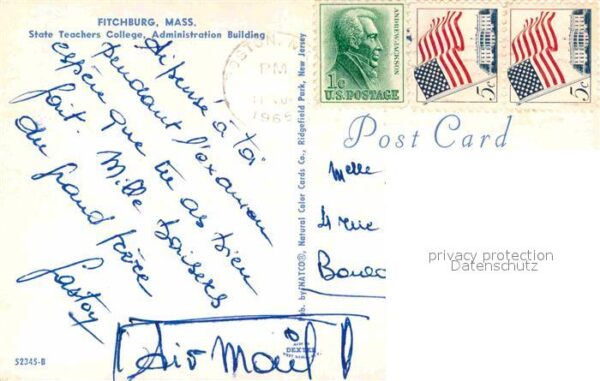 FITCHBURG, MASS.
State Teachers College, Administration Building
Je pense à toi
pendant l'examen
espère que tu as bien
fait. Mille baisers
du grand frère
Gaston
Air Mail
52345-B
Pub. by NATCO®, Natural Color Cards Co., Ridgefield Park, New Jersey
DEXTER
BOSTON, M
PM
1965
1c
U.S. POSTAGE
ANDREW JACKSON
5c
5c
Post Card
Melle
4 rue
privacy protection
Datenschutz